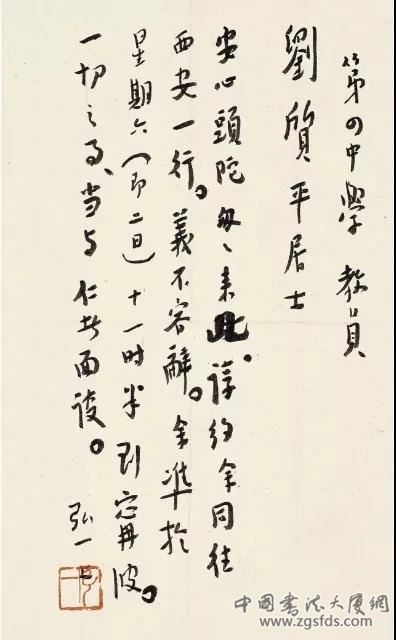 第四中學 教員
劉質平居士
安心頭陀匆匆來此。諄約余同往
西安一行。義不容辭。余準於
星期六(即二日)十一时半到寧波。
一切之事、当与仁者面談。
弘一
中国书法大厦网
www.zgsfds.com